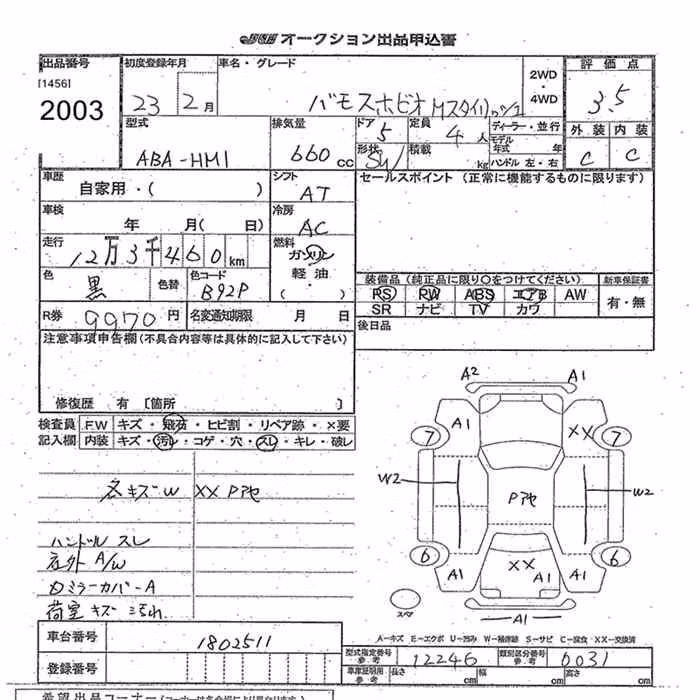 JU オークション出品申込書
出品番号 [1456] 2003
初度登録年月 23 2月
車名・グレード バモスホビオ Mスタイリッシュ
2WD・4WD
評価点 3.5
型式 ABA-HM1
排気量 660 cc
ドア 5
定員 4 人
ディーラー・並行
モデル年式 年
形状 SW
積載 kg
ハンドル 左・右
外装 内装
C C
車歴 自家用・( )
シフト AT
セールスポイント (正常に機能するものに限ります)
車検 年 月( 日)
冷房 AC
走行 12万3千460km
燃料 ガソリン 軽油 ・( )
色 黒
色替
色コード B92P
装備品 (純正品に限り○をつけてください)
新車保証書
PS PW ABS エアB AW
有・無
SR ナビ TV カワ
R券 9970円
名変通知期限 月 日
後日品
注意事項申告欄(不具合内容等は具体的に記入して下さい)
修復歴 有 [箇所 ]
検査員記入欄
FW キズ・飛石・ヒビ割・リペア跡・×要
内装 キズ・汚レ・コゲ・穴・スレ・キレ・破レ
キズW XX Pアセ
ハンドル スレ
右外 A/W
ミラーカバーA
荷室キズ 汚れ
A2 A1
A1 XX
7 7
W2 Pアセ W2
6 6
A1 XX A1 A1
スペア
A1
A―キズ E―エクボ U―凹み W―補修跡 S―サビ C―腐食 XX―交換済
車台番号 1802511
型式指定番号 参考 12246
類別区分番号 参考 0031
登録番号
車庫証明用 参考 長さ cm 幅 cm 高さ cm
希望出品コーナー